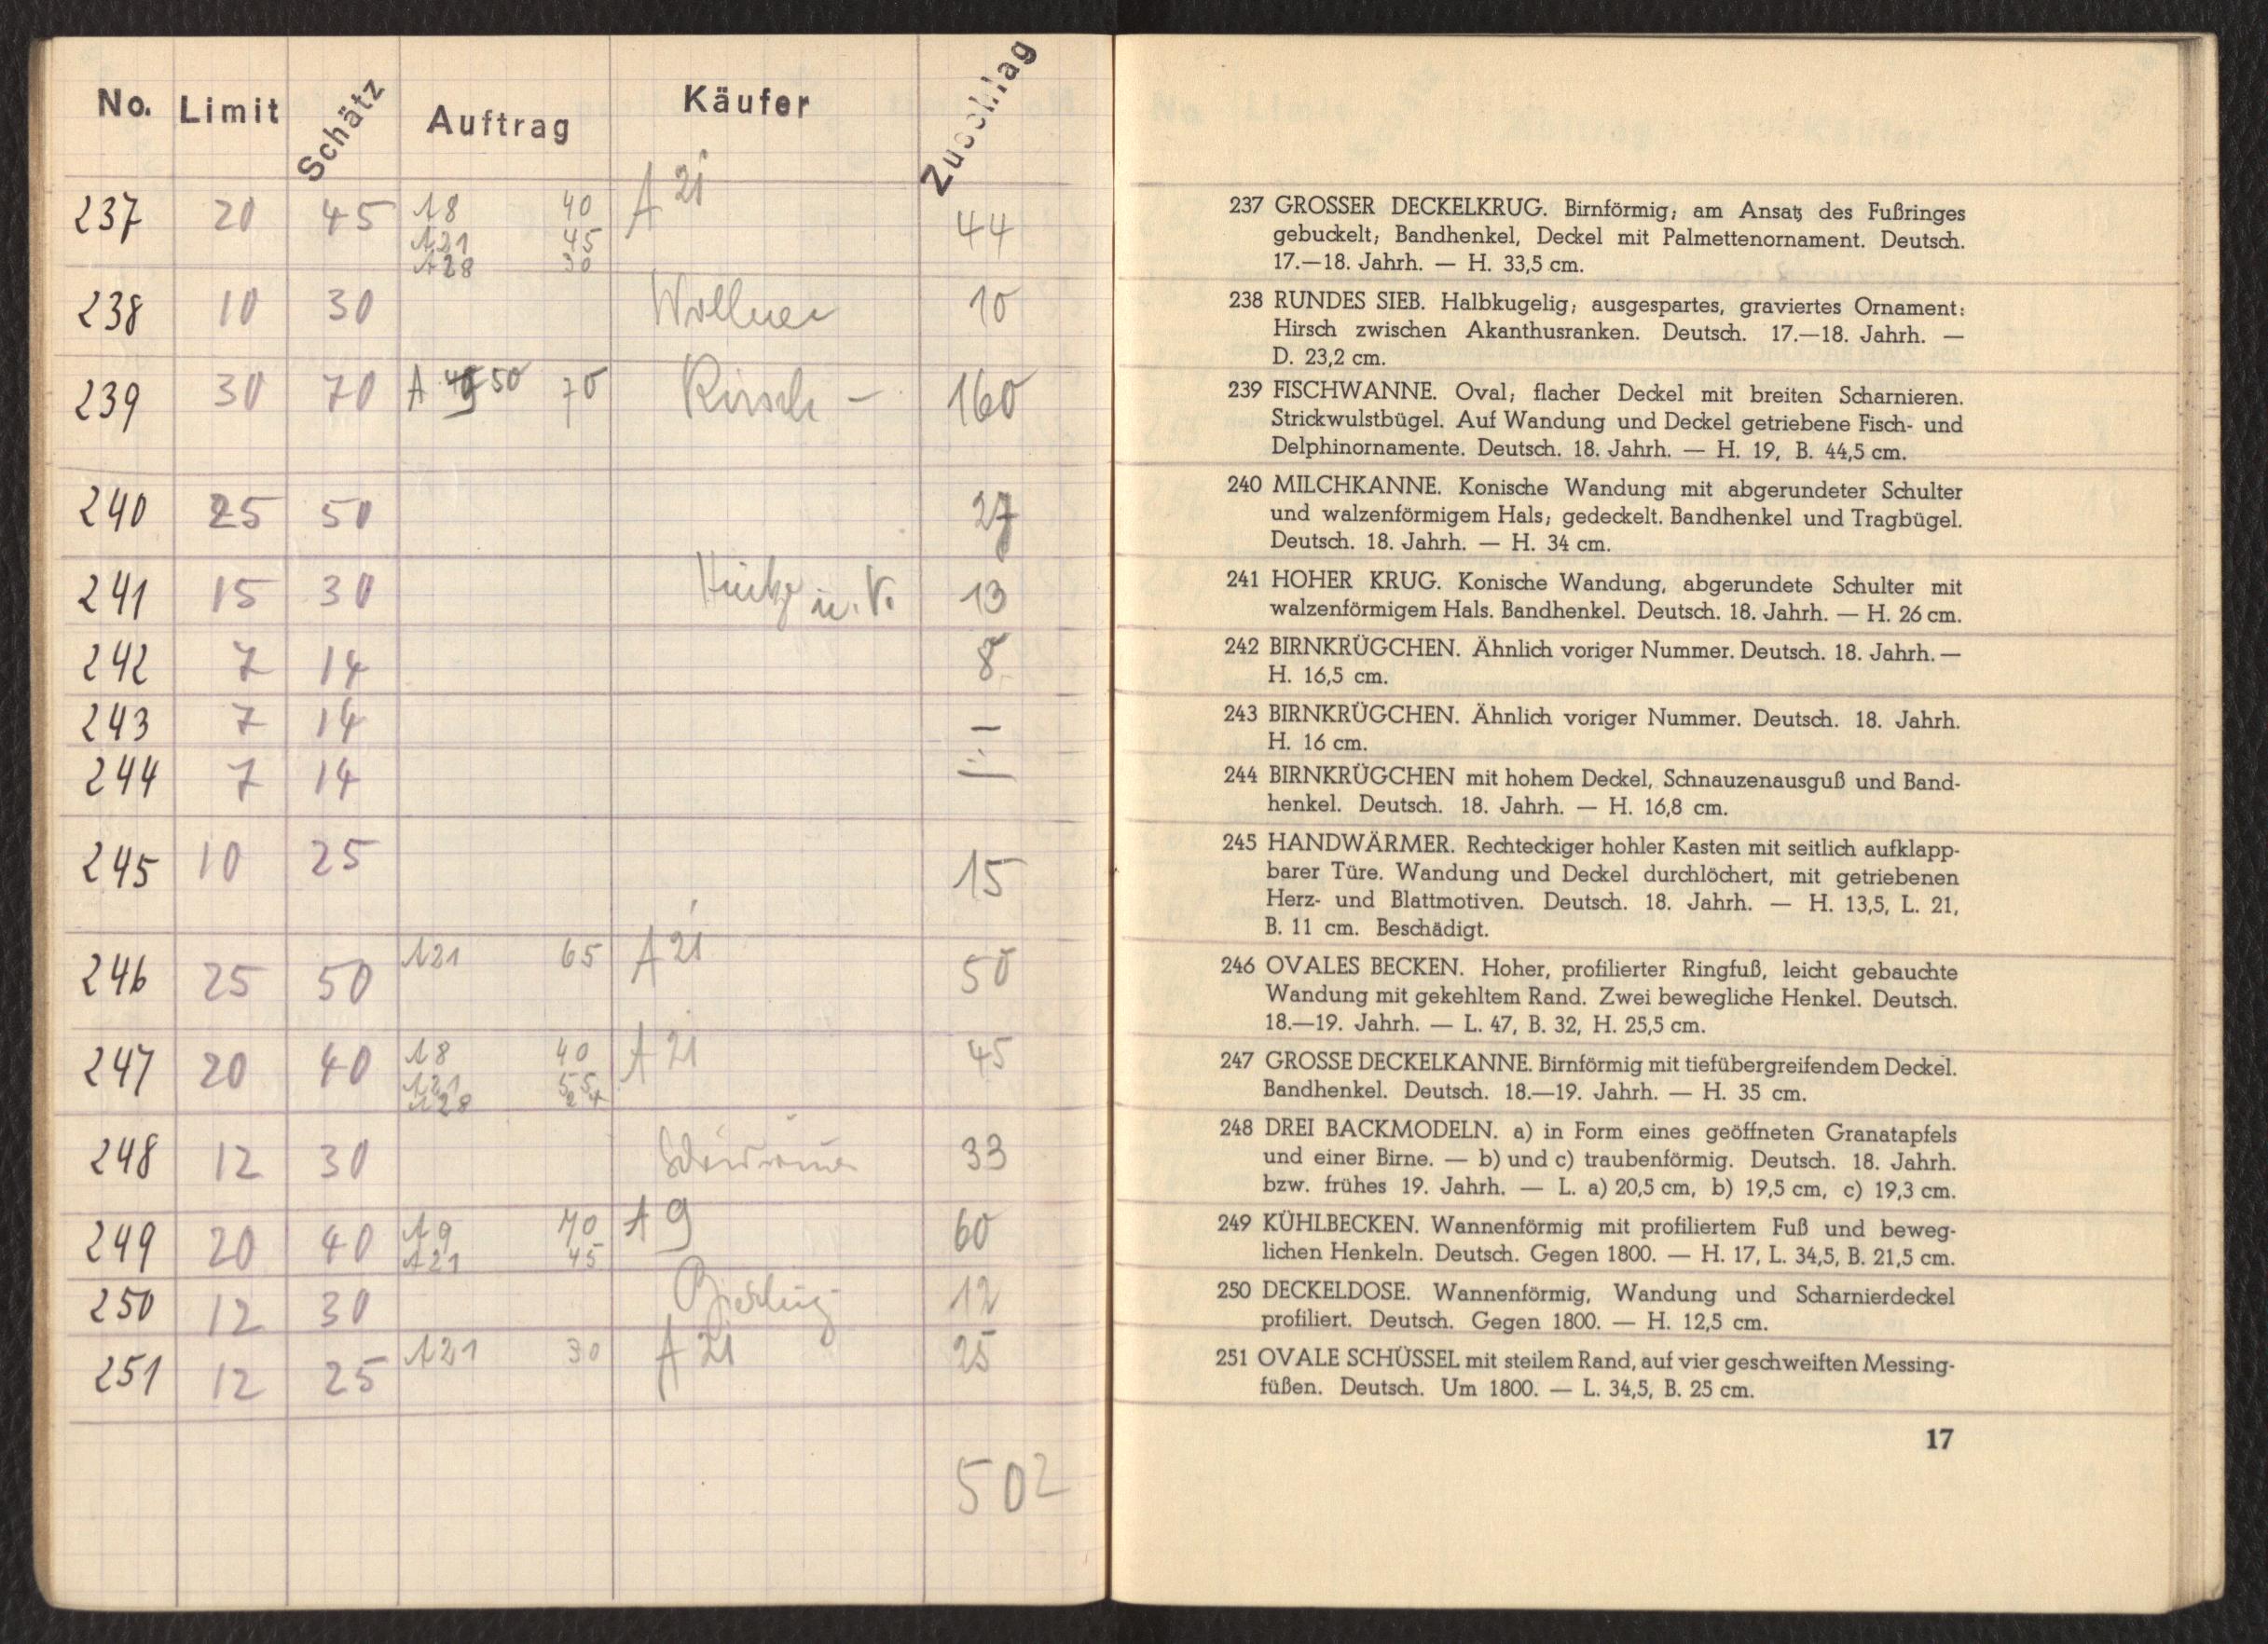 No. Limit Schätz Auftrag Käufer Zuschlag
237 20 45 A8 40 A 21 44
A21 45
A28 30
238 10 30 10
239 30 70 A 50 70 Kirsch — 160
240 25 50 27
241 15 30 u. V. 13
242 7 14 8
243 7 14 —
244 7 14 —
245 10 25 15
246 25 50 A21 65 A 21 50
247 20 40 A8 40 A 21 45
A21 55
A28
248 12 30 33
249 20 40 A9 70 A 9 60
A21 45
250 12 30 12
251 12 25 A21 30 A 21 25
502
237 GROSSER DECKELKRUG. Birnförmig; am Ansatz des Fußringes
gebuckelt; Bandhenkel, Deckel mit Palmettenornament. Deutsch.
17.—18. Jahrh. — H. 33,5 cm.
238 RUNDES SIEB. Halbkugelig; ausgespartes, graviertes Ornament:
Hirsch zwischen Akanthusranken. Deutsch. 17.—18. Jahrh. —
D. 23,2 cm.
239 FISCHWANNE. Oval; flacher Deckel mit breiten Scharnieren.
Strickwulstbügel. Auf Wandung und Deckel getriebene Fisch- und
Delphinornamente. Deutsch. 18. Jahrh. — H. 19, B. 44,5 cm.
240 MILCHKANNE. Konische Wandung mit abgerundeter Schulter
und walzenförmigem Hals; gedeckelt. Bandhenkel und Tragbügel.
Deutsch. 18. Jahrh. — H. 34 cm.
241 HOHER KRUG. Konische Wandung, abgerundete Schulter mit
walzenförmigem Hals. Bandhenkel. Deutsch. 18. Jahrh. — H. 26 cm.
242 BIRNKRÜGCHEN. Ähnlich voriger Nummer. Deutsch. 18. Jahrh. —
H. 16,5 cm.
243 BIRNKRÜGCHEN. Ähnlich voriger Nummer. Deutsch. 18. Jahrh.
H. 16 cm.
244 BIRNKRÜGCHEN mit hohem Deckel, Schnauzenausguß und Band-
henkel. Deutsch. 18. Jahrh. — H. 16,8 cm.
245 HANDWÄRMER. Rechteckiger hohler Kasten mit seitlich aufklapp-
barer Türe. Wandung und Deckel durchlöchert, mit getriebenen
Herz- und Blattmotiven. Deutsch. 18. Jahrh. — H. 13,5, L. 21,
B. 11 cm. Beschädigt.
246 OVALES BECKEN. Hoher, profilierter Ringfuß, leicht gebauchte
Wandung mit gekehltem Rand. Zwei bewegliche Henkel. Deutsch.
18.—19. Jahrh. — L. 47, B. 32, H. 25,5 cm.
247 GROSSE DECKELKANNE. Birnförmig mit tiefübergreifendem Deckel.
Bandhenkel. Deutsch. 18.—19. Jahrh. — H. 35 cm.
248 DREI BACKMODELN. a) in Form eines geöffneten Granatapfels
und einer Birne. — b) und c) traubenförmig. Deutsch. 18. Jahrh.
bzw. frühes 19. Jahrh. — L. a) 20,5 cm, b) 19,5 cm, c) 19,3 cm.
249 KÜHLBECKEN. Wannenförmig mit profiliertem Fuß und beweg-
lichen Henkeln. Deutsch. Gegen 1800. — H. 17, L. 34,5, B. 21,5 cm.
250 DECKELDOSE. Wannenförmig, Wandung und Scharnierdeckel
profiliert. Deutsch. Gegen 1800. — H. 12,5 cm.
251 OVALE SCHÜSSEL mit steilem Rand, auf vier geschweiften Messing-
füßen. Deutsch. Um 1800. — L. 34,5, B. 25 cm.
17